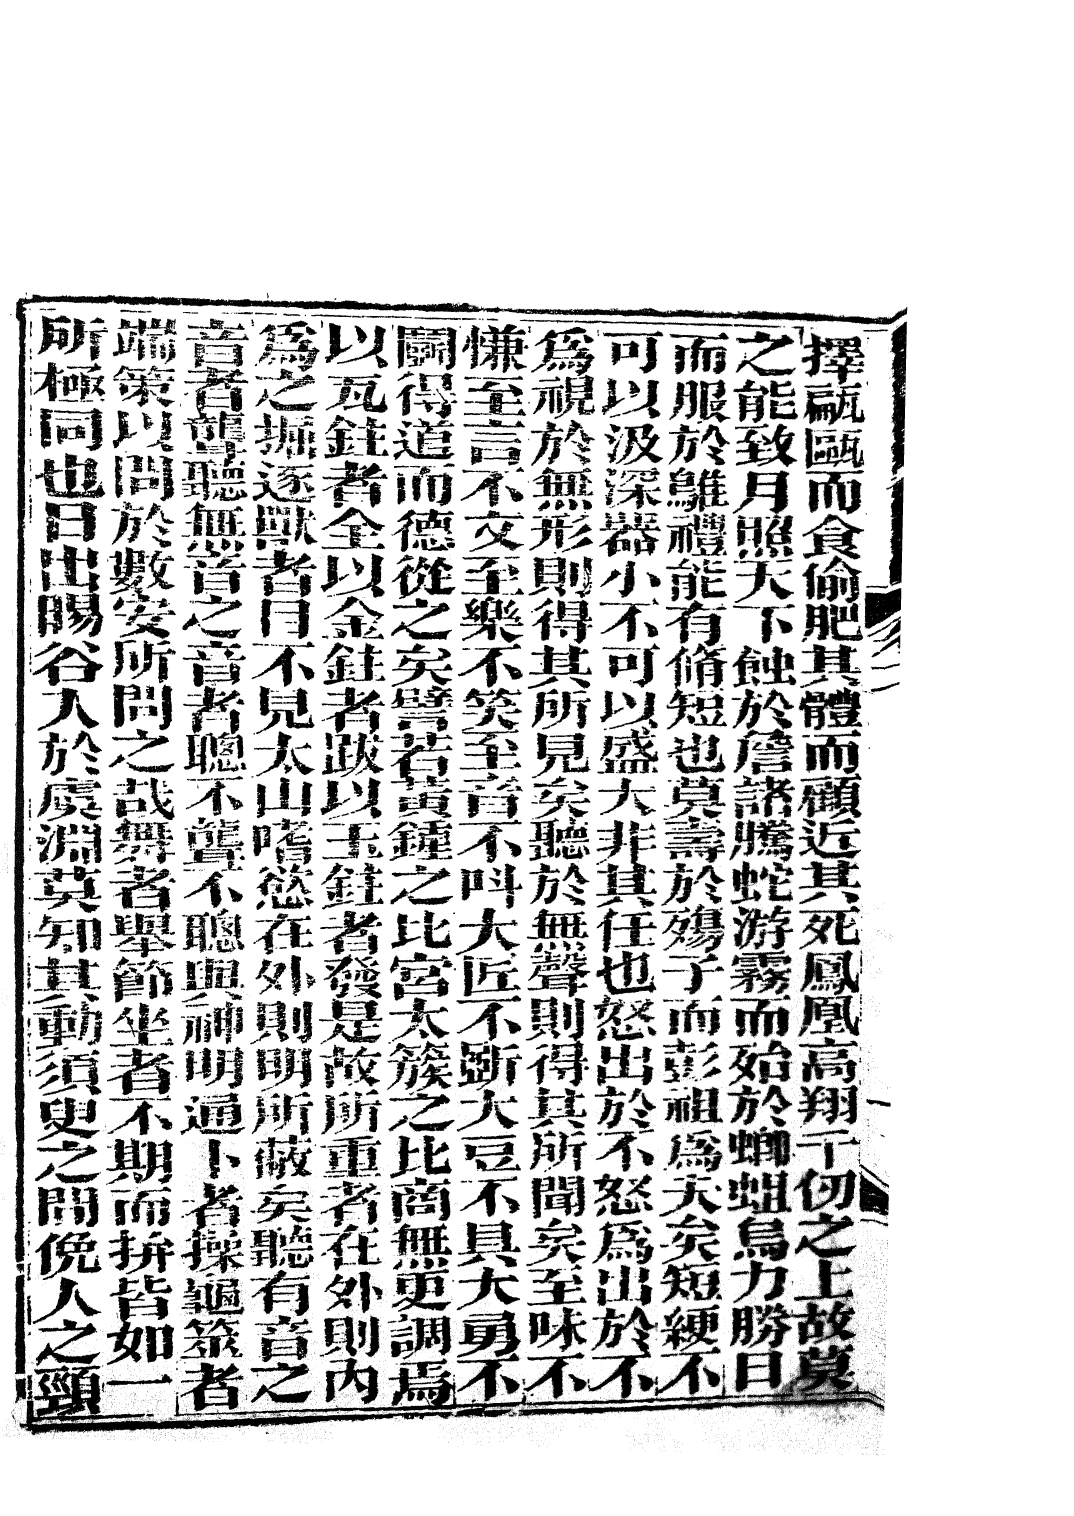 擇瓻甌而食偷肥其體而顧近其死鳳凰高翔千仞之上故莫
之能致月照天下蝕於詹諸騰蛇游霧而殆於蝍蛆烏力勝日
而服於鵻禮能有脩短也莫壽於殤子而彭祖爲夭矣短綆不
可以汲深器小不可以盛大非其任也怒出於不怒爲出於不
爲視於無形則得其所見矣聽於無聲則得其所聞矣至味不
慊至言不文至樂不笑至音不叫大匠不斵大豆不具大勇不
鬭得道而德從之矣譬若黃鍾之比宮太簇之比商無更調焉
以瓦鉒者全以金鉒者跋以玉鉒者發是故所重者在外則內
爲之掘逐獸者目不見太山嗜慾在外則明所蔽矣聽有音之
音者聾聽無音之音者聰不聾不聰與神明通卜者操龜筮者
端策以問於數安所問之哉舞者舉節坐者不期而拚皆如一
所極同也日出暘谷入於虞淵莫知其動須臾之間俛人之頸